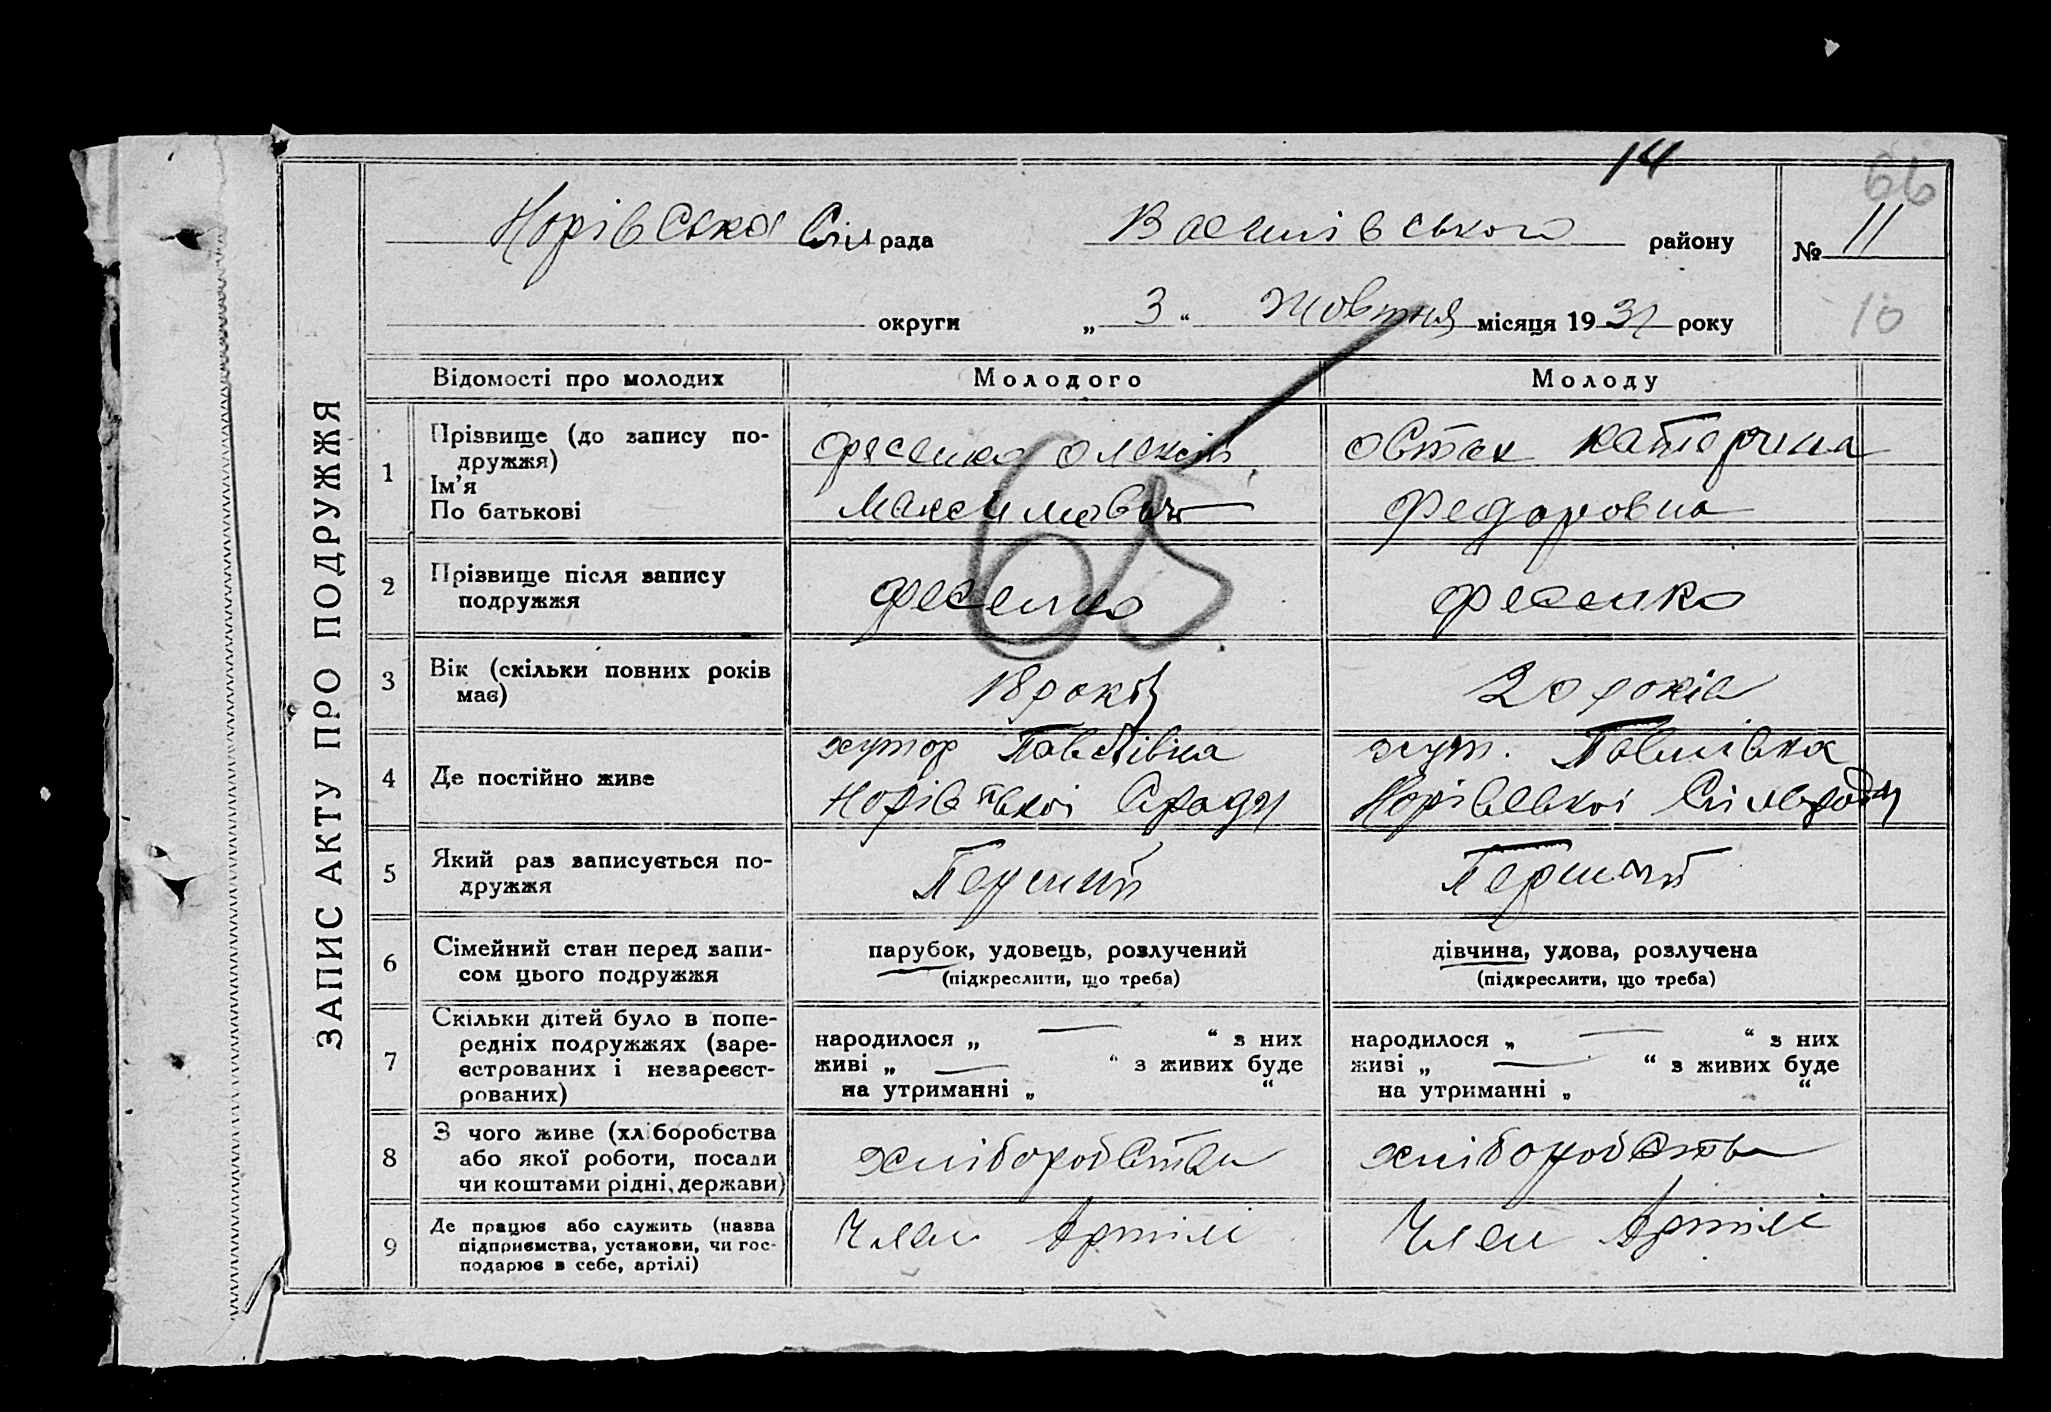 14
66
Норівська Сіл рада Василівського району № 11
округи „ 3 “ Жовтня місяця 1931 року
10
ЗАПИС АКТУ ПРО ПОДРУЖЖЯ
Відомості про молодих Молодого Молоду
1 Прізвище (до запису подружжя) Фесенко Олексій
Ім'я
По батькові Максимович
Овтах Катерина
Федоровна
65
2 Прізвище після запису подружжя Фесенко Фесенко
3 Вік (скільки повних років має) 18 років 20 років
4 Де постійно живе хутор Павлівка
Норівської С/ради
хут. Павлівка
Норівської Сільради
5 Який раз записується подружжя Перший Перший
6 Сімейний стан перед записом цього подружжя
парубок, удовець, розлучений
(підкреслити, що треба)
дівчина, удова, розлучена
(підкреслити, що треба)
7 Скільки дітей було в попередніх подружжях (зареєстрованих і незареєстрованих)
народилося „ — “ з них
живі „ — “ з живих буде
на утриманні „ “
народилося „ — “ з них
живі „ — “ з живих буде
на утриманні „ “
8 З чого живе (хліборобства або якої роботи, посади чи коштами рідні, держави) хліборобства хліборобства
9 Де працює або служить (назва підприємства, установи, чи господарює в себе, артілі) Член Артілі Член Артілі